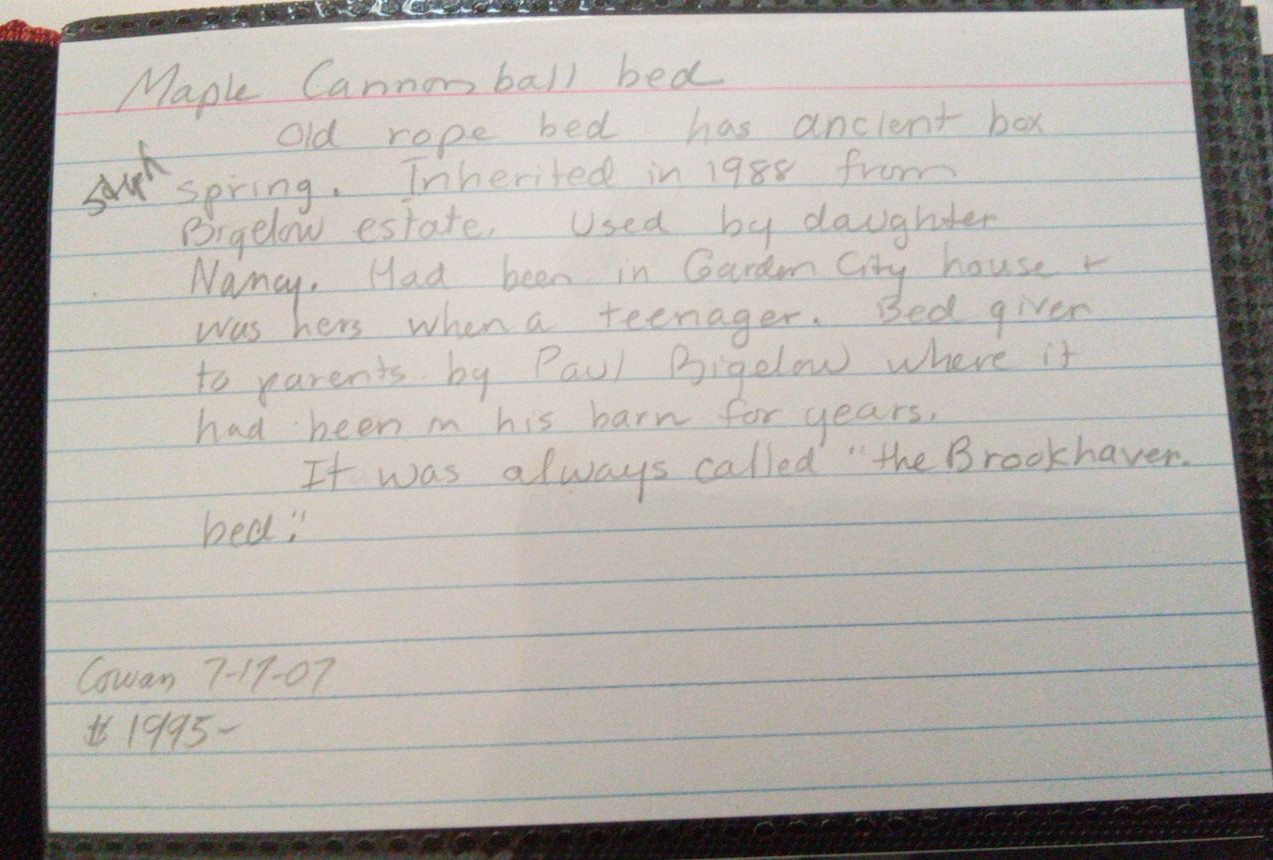 Maple Cannon ball bed
Old rope bed has ancient box
spring. Inherited in 1988 from
Bigelow estate. Used by daughter
Nancy. Had been in Garden City house +
was hers when a teenager. Bed given
to parents by Paul Bigelow where it
had been in his barn for years.
It was always called "the Brookhaven
bed."
Cowan 7-17-07
$ 1995-